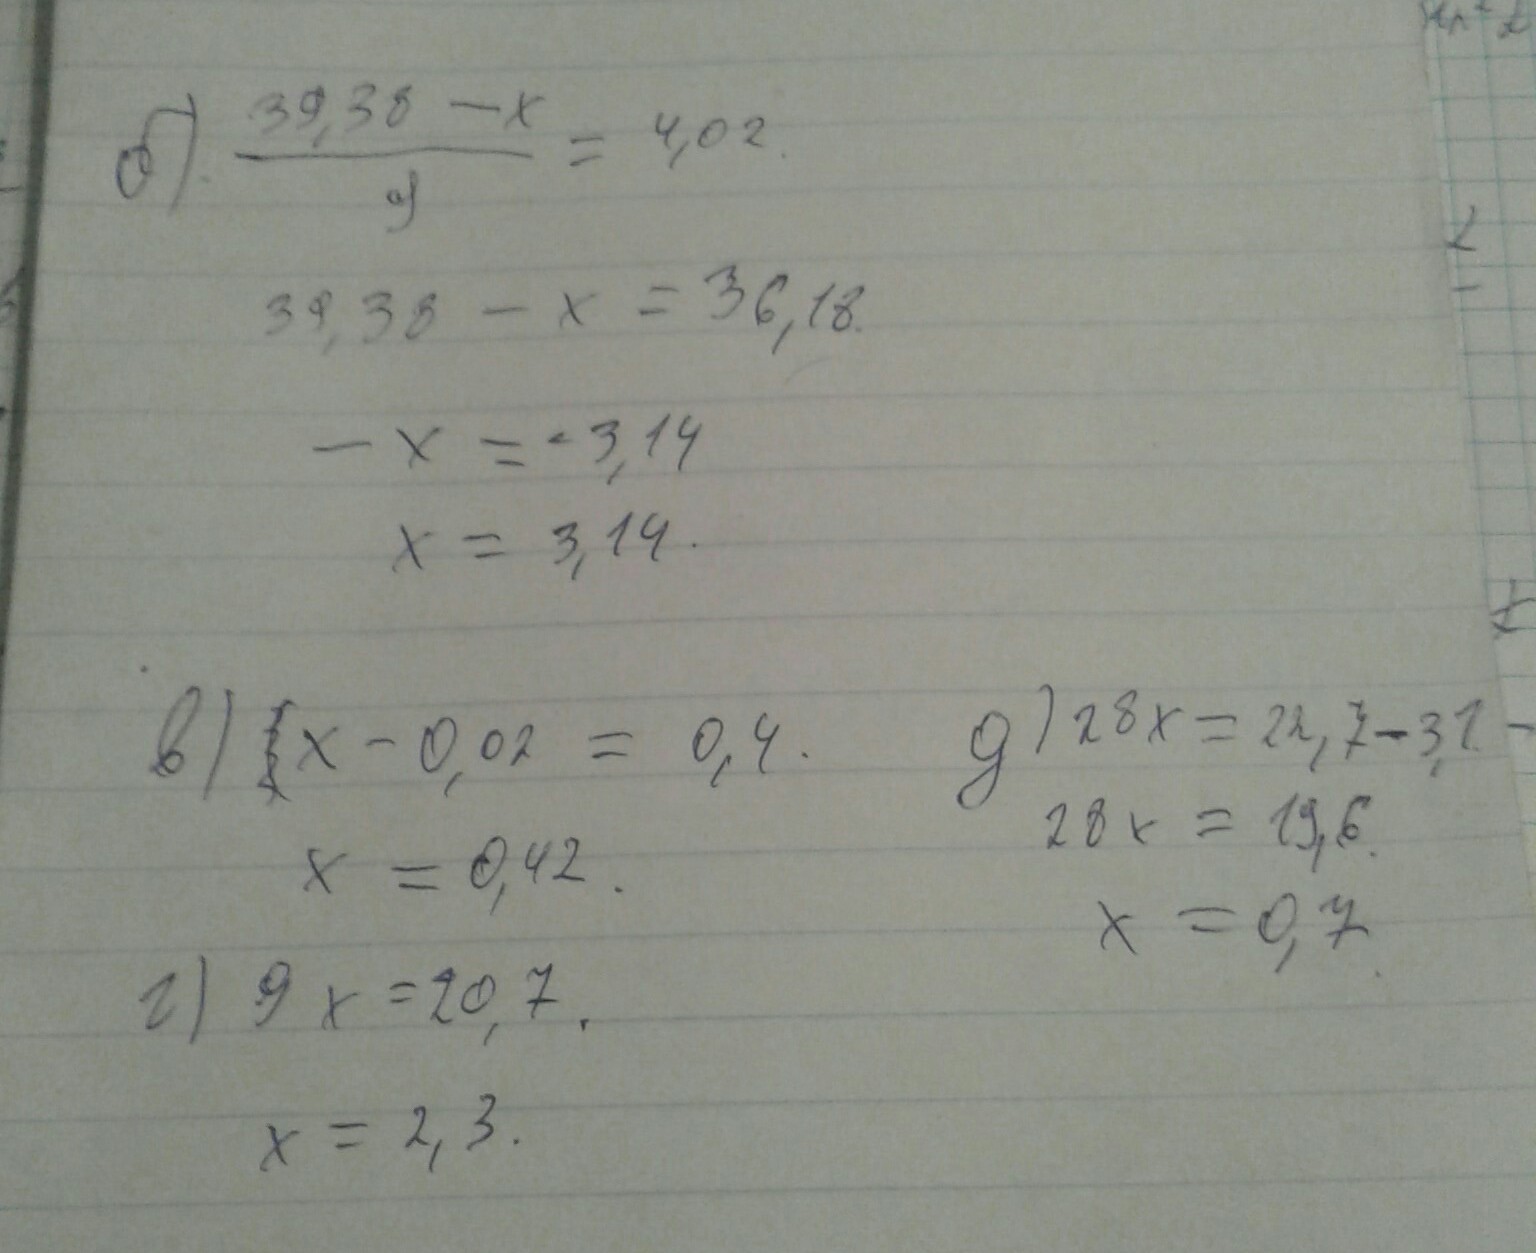 б) 39,38 - x / 9 = 4,02.
39,38 - x = 36,18.
- x = -3,14
x = 3,14.
в) x - 0,02 = 0,4.
x = 0,42.
г) 9x = 20,7.
x = 2,3.
д) 28x = 22,7 - 3,1
28x = 19,6.
x = 0,7.